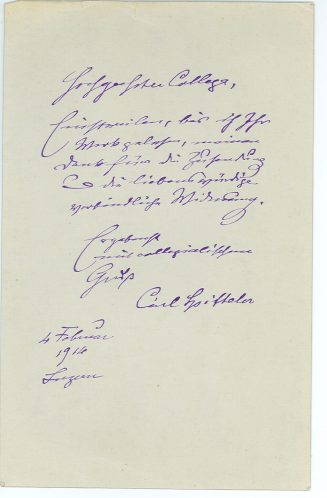 Hochgeehrter Collega,
Einstweilen, bis ich Ihr
Werk gelesen, meinen
Dank für die Zusendung
& die liebenswürdige
verbindliche Widmung.
Ergebenst
mit collegialischem
Gruß
Carl Spitteler
4 Februar
1914
Luzern